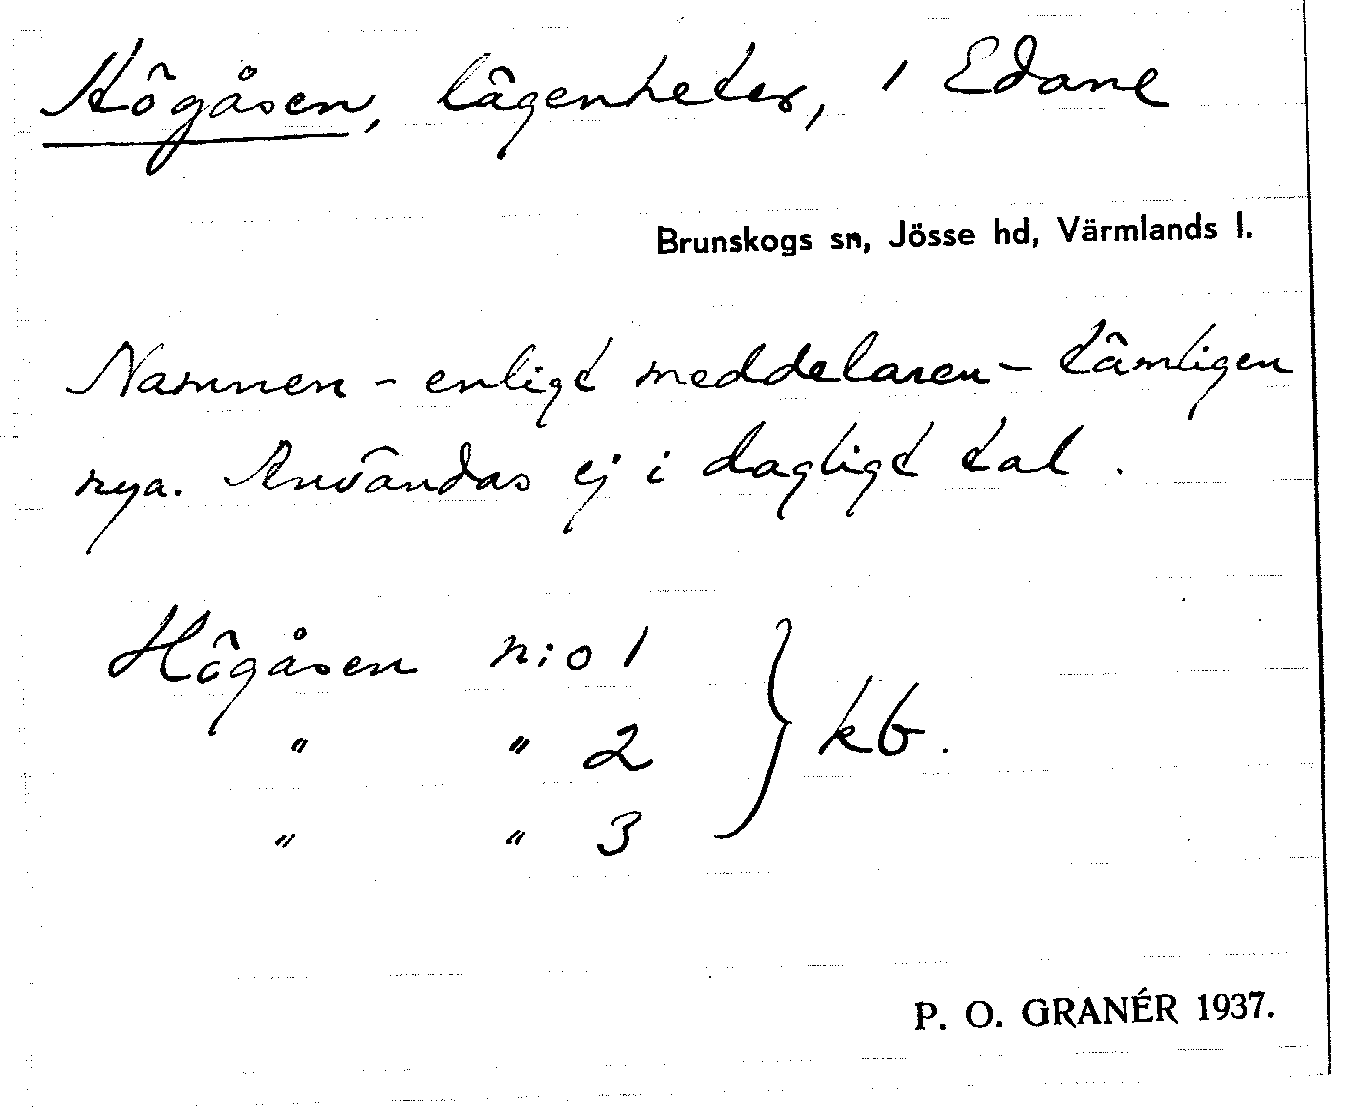 Högåsen, lägenheter, 1 Edane
Brunskogs sn, Jösse hd, Värmlands l.
Namnen - enligt meddelaren - tämligen
nya. Användas ej i dagligt tal.
Högåsen n:o 1
" " 2 } kb.
" " 3
P. O. GRANÉR 1937.